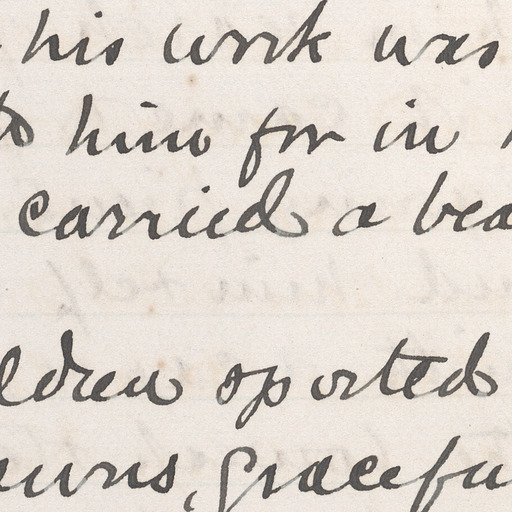 his work was
to him for in
carried a bea
ldren sported
awns, gracefu